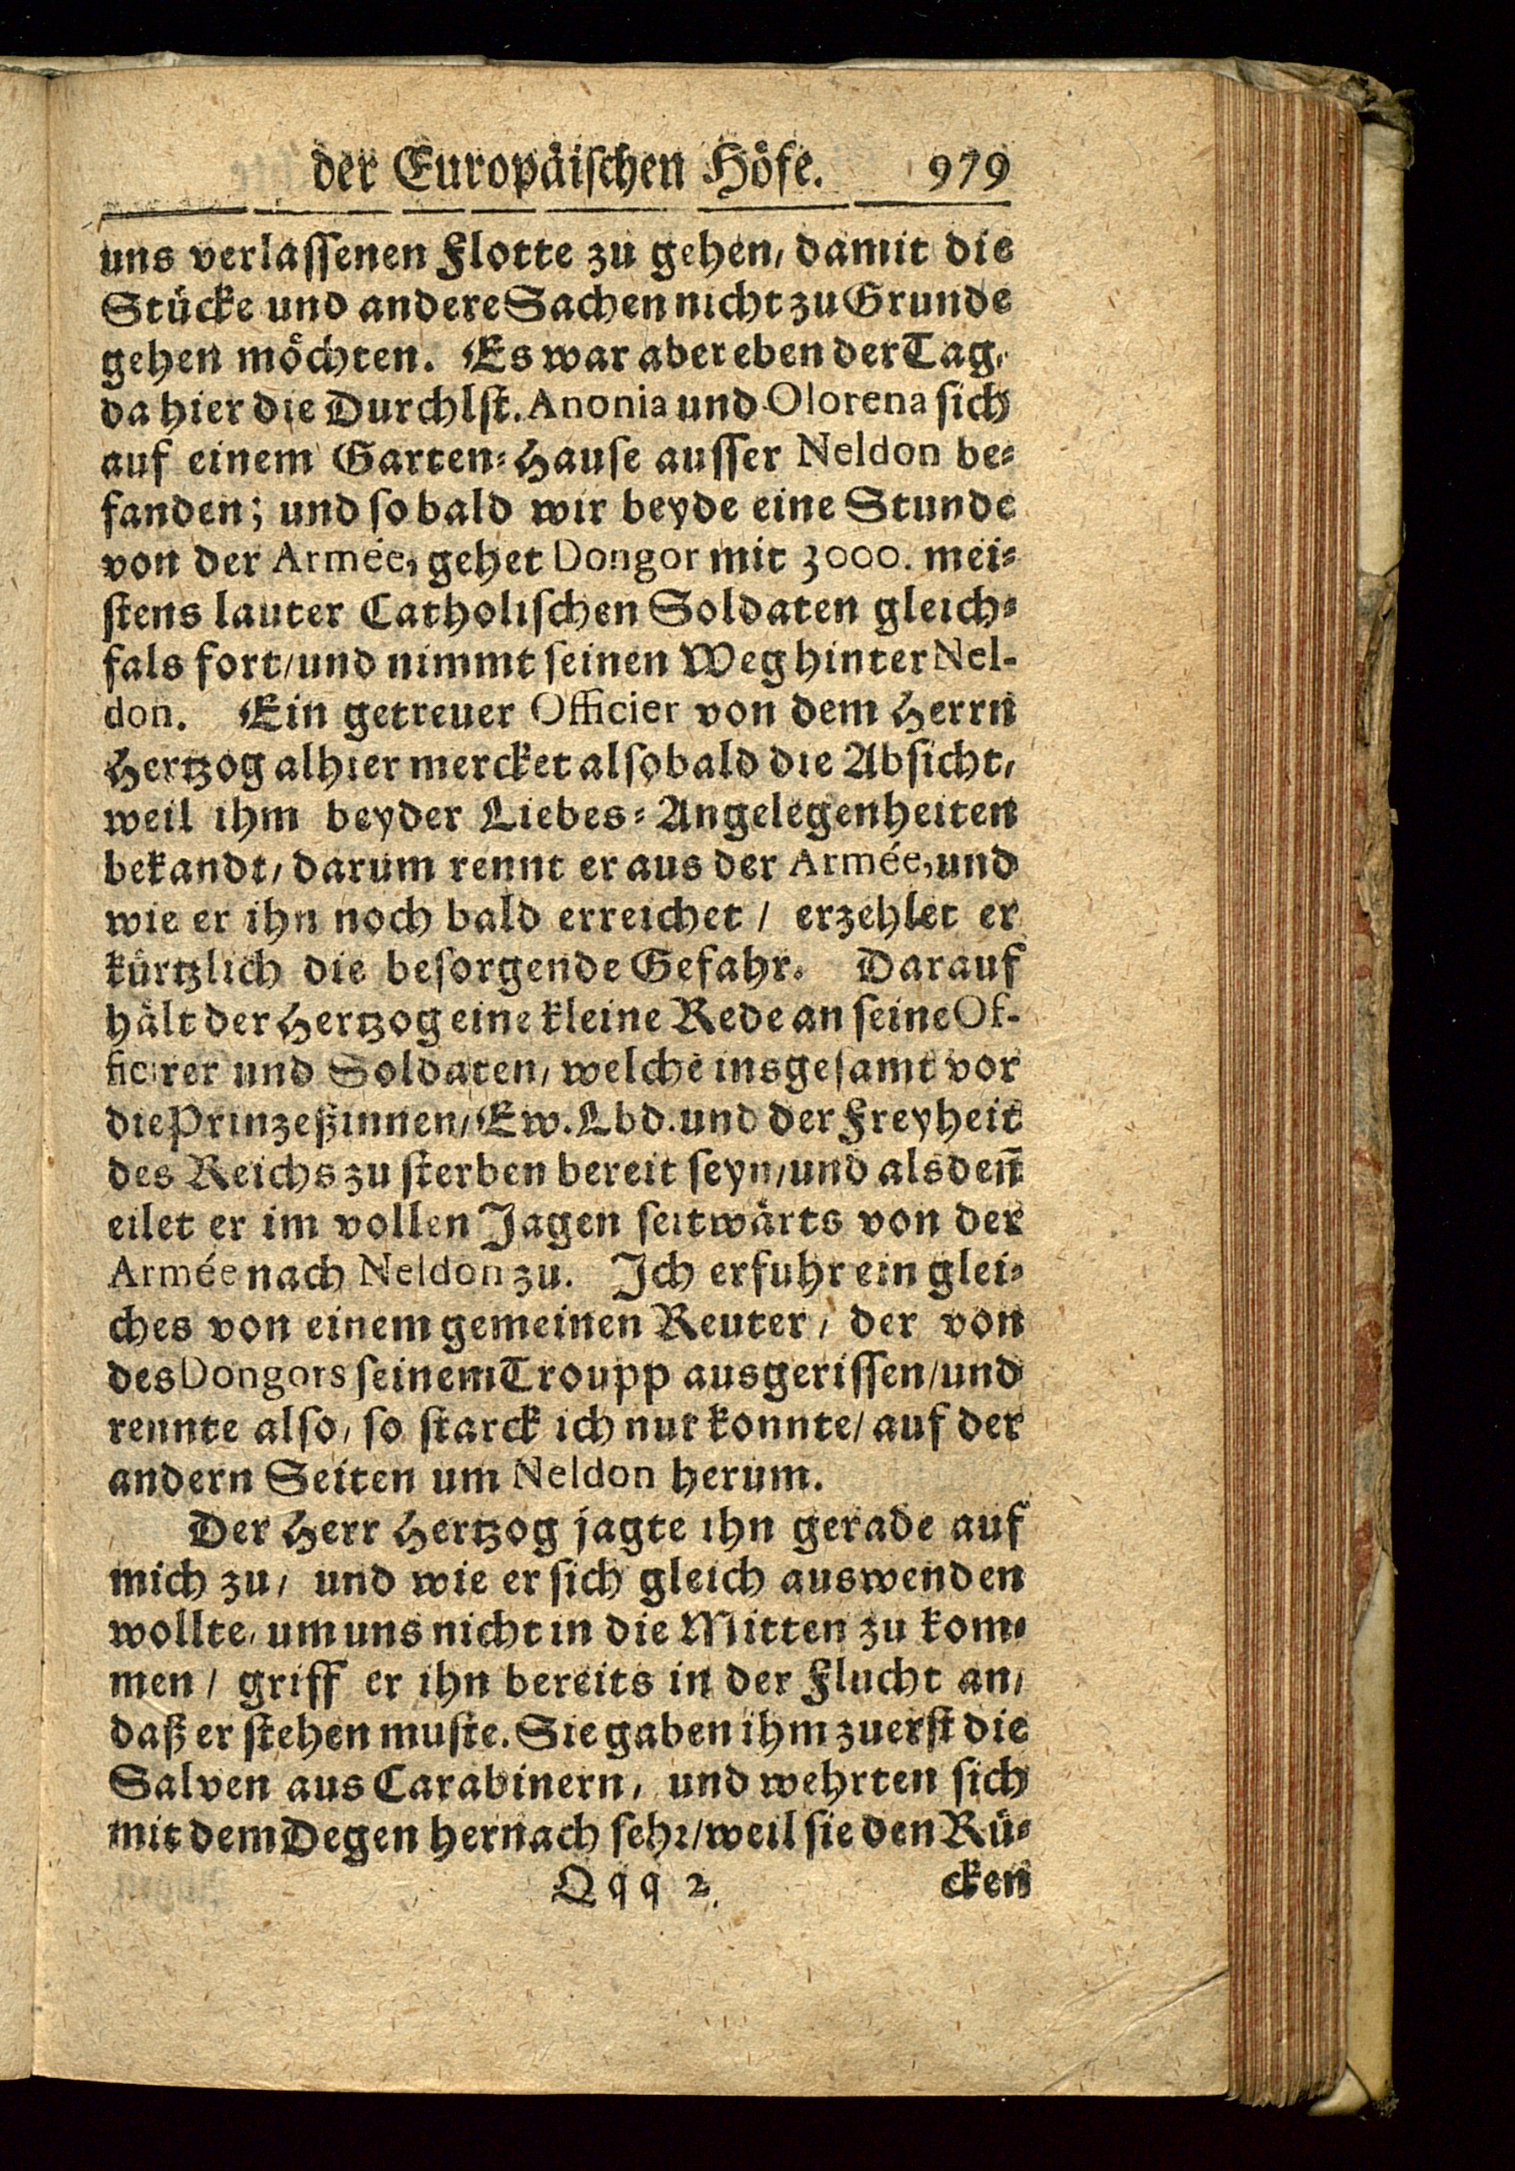 der Europäischen Höfe. 979
uns verlassenen Flotte zu gehen/ damit die
Stücke und andere Sachen nicht zu Grunde
gehen möchten. Es war aber eben der Tag/
da hier die Durchlst. Anonia und Olorena sich
auf einem Garten-Hause ausser Neldon be-
fanden; und so bald wir beyde eine Stunde
von der Armée, gehet Dongor mit 3000. mei-
stens lauter Catholischen Soldaten gleich-
fals fort/ und nimmt seinen Weg hinter Nel-
don. Ein getreuer Officier von dem Herrn
Hertzog alhier mercket alsobald die Absicht/
weil ihm beyder Liebes-Angelegenheiten
bekandt/ darum rennt er aus der Armée, und
wie er ihn noch bald erreichet / erzehlet er
kürtzlich die besorgende Gefahr. Darauf
hält der Hertzog eine kleine Rede an seine Of-
ficirer und Soldaten/ welche insgesamt vor
die Prinzeßinnen/ Ew. Lbd. und der Freyheit
des Reichs zu sterben bereit seyn/ und alsdeñ
eilet er im vollen Jagen seitwärts von der
Armée nach Neldon zu. Ich erfuhr ein glei-
ches von einem gemeinen Reuter / der von
des Dongors seinem Troupp ausgerissen/ und
rennte also/ so starck ich nur konnte/ auf der
andern Seiten um Neldon herum.
Der Herr Hertzog jagte ihn gerade auf
mich zu/ und wie er sich gleich auswenden
wollte/ um uns nicht in die Mitten zu kom-
men / griff er ihn bereits in der Flucht an/
daß er stehen muste. Sie gaben ihm zuerst die
Salven aus Carabinern/ und wehrten sich
mit dem Degen hernach sehr/ weil sie den Rü-
Qqq 2 cken